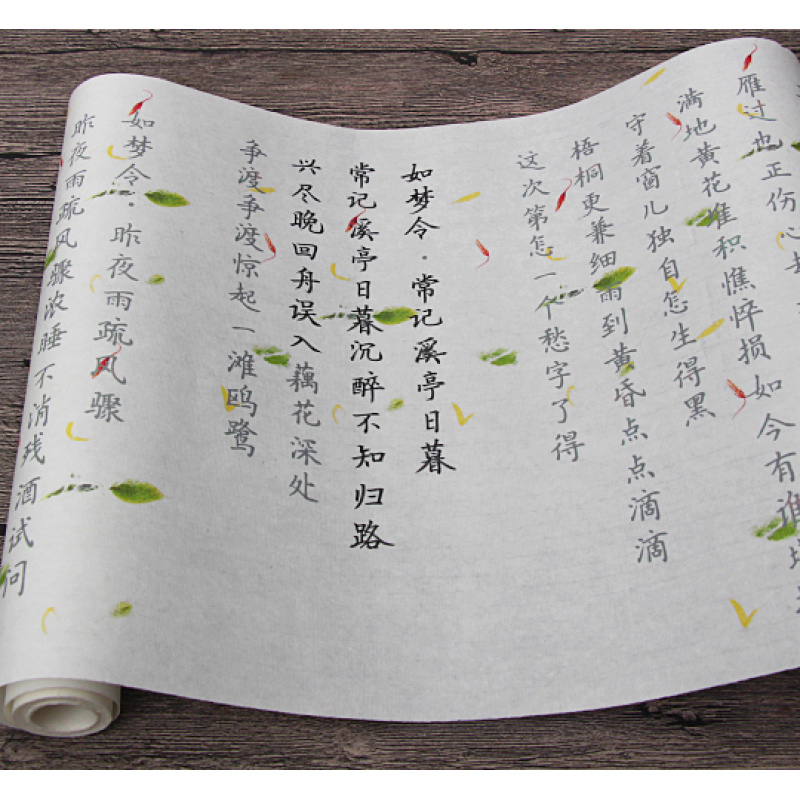 雁过也正伤心
满地黄花堆积憔悴损如今有谁堪
守着窗儿独自怎生得黑
梧桐更兼细雨到黄昏点点滴滴
这次第怎一个愁字了得
如梦令·常记溪亭日暮
常记溪亭日暮沉醉不知归路
兴尽晚回舟误入藕花深处
争渡争渡惊起一滩鸥鹭
如梦令·昨夜雨疏风骤
昨夜雨疏风骤浓睡不消残酒试问